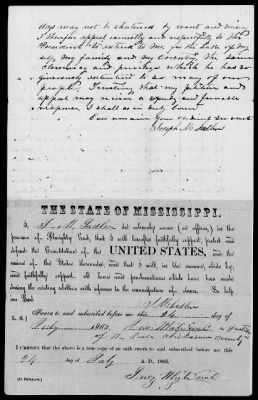 days may not be shortened by want and misery
I therefore appeal earnestly and respectfully to the
President to extend to me, for the sake of my
age, my family and my Country, the same
clemency and privileges which he has so
generously extended to so many of our
people. Trusting that my petition and
appeal may receive a speedy and favorable
response, I shall as in duty bound
Ever remain your obedient servant
Joseph M.
THE STATE OF MISSISSIPPI.
I, do solemnly swear (or affirm,) in the
presence of Almighty God, that I will hereafter faithfully support, protect and
defend the Constitution of the UNITED STATES, and the
union of the States thereunder, and that I will, in like manner, abide by,
and faithfully support all laws and proclamations which have been made
during the existing rebellion with reference to the emancipation of slaves. So help
me God.
L. S. Sworn to and subscribed before me this 24 day of
July 1865.
of the County
I CERTIFY that the above is a true copy of an oath sworn to and subscribed before me this
24 day of July A. D. 1865.